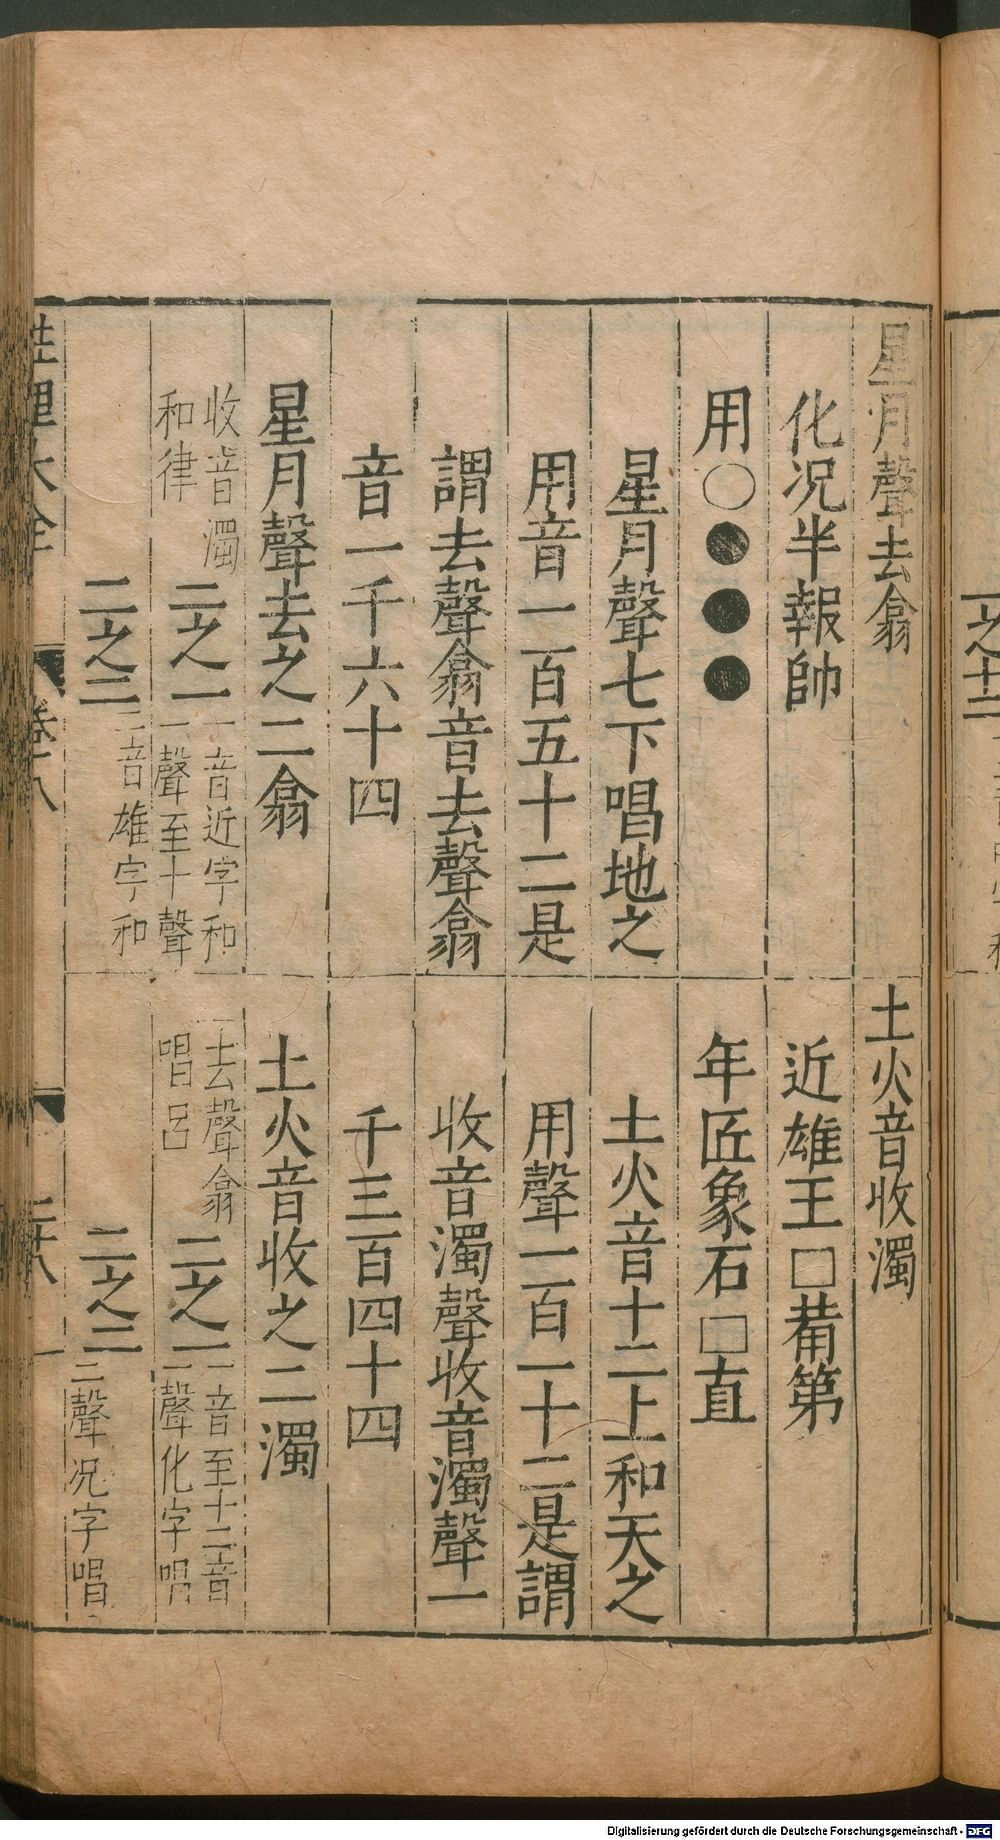 星月聲去翕
化况半報帥
用○●●●
星月聲七下唱地之
用音一百五十二是
謂去聲翕音去聲翕
音一千六十四
星月聲去之二翕
收音濁
和律
二之一
一音近字和
一聲至十聲
二之二
二音雄字和
土火音收濁
近雄王□菐第
年匠象石□直
土火音十二上和天之
用聲一百一十二是謂
收音濁聲收音濁聲一
千三百四十四
土火音收之二濁
去聲翕
唱呂
二之一
一音至十二音
一聲化字唱
二之二
二聲况字唱
性理大全
卷八
二十八
一之十二
Digitalisierung gefördert durch die Deutsche Forschungsgemeinschaft - DFG